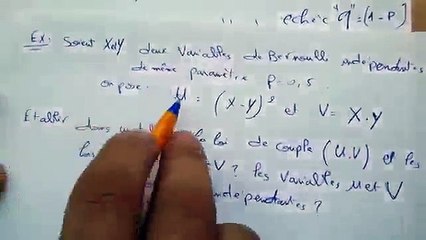 echéc "q" = (1 - P)
Ex: Soient X et Y deux Variables de Bernoulli indépendantes
de même paramètre P = 0,5.
on pose U = (X - Y)² et V = X . Y
Etablir dans un la loi de couple (U.V) et les
lois V ? les Variables U et V
indépendantes ?